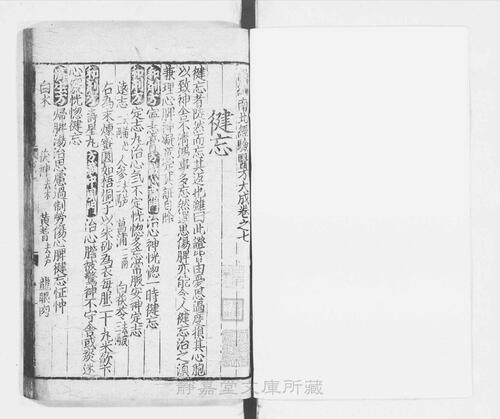 南北經驗醫方大成卷之七
健忘
健忘者陡然而忘其事也雖曰此證皆由憂思過度損其心胞
以致神舍不清遇事多忘然思傷脾亦能令人健忘治之須
兼理心脾
和劑方
治心神恍惚一時健忘
和劑方 定志丸治心氣不定恍惚多忘常服安神定志
遠志 人參 菖蒲 白茯苓
右為末煉蜜圓如梧桐子以朱砂為衣每服二十丸米飲下
和劑方 壽星丸 治心膽被驚神不守舍或痰迷
心竅恍惚健忘
濟生方 歸脾湯治思慮過制勞傷心脾健忘怔忡
白朮 茯神去木 黃耆去芦 龍眼肉
静嘉堂文庫所蔵